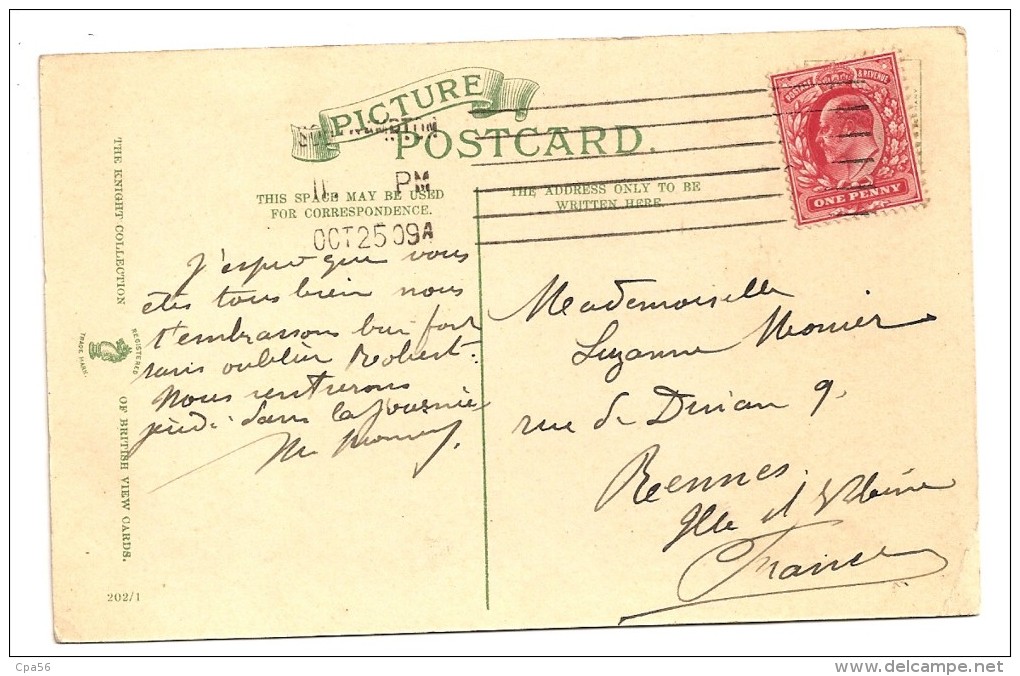 PICTURE
POSTCARD.
SOUTHAMPTON
11. PM
OCT 25 09 A
THIS SPACE MAY BE USED
FOR CORRESPONDENCE.
THE ADDRESS ONLY TO BE
WRITTEN HERE.
POSTAGE & REVENUE
ONE PENNY
J'espère que vous
êtes tous bien nous
t'embrassons bien fort
sans oublier Robert.
Nous rentrerons
jeudi dans la journée
M.
Mademoiselle
Suzanne Monier
rue de 9.
Rennes.
Ille et Vilaine
France
THE KNIGHT COLLECTION
REGISTERED
TRADE MARK.
OF BRITISH VIEW CARDS.
202/1
Cpa56
www.delcampe.net